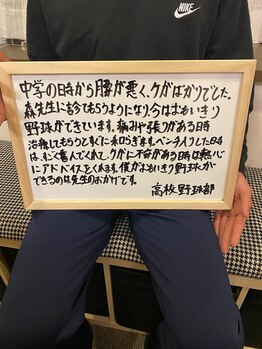 NIKE
中学の時から腰が悪く、ケガばかりでした。
森先生に診てもらうようになり、今はおもいきり
野球ができています。痛みや張りがある時
治療してもらうとすぐに和らぎます。ベンチ入りした時
は、すごく喜んでくれて、ケガに不安がある時は親心
にアドバイスをくれます。僕がおもいきり野球が
できるのは先生のおかげです。
高校野球部